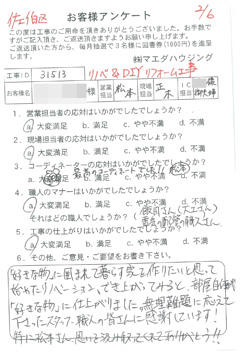 佐伯区 お客様アンケート 2/6
この度は工事のご用命を頂きありがとうございました。お手数で
すがご記入頂き、ご返送頂きますようお願い申し上げます。
ご返送頂いた方から、毎月抽選で3名様に図書券(1000円)を進呈
します。
㈱マエダハウジング
工事ID 31513 リノベ&DIYリフォーム工事
お客様名 様 営業担当 松本 現場担当 正木 IC
1．営業担当者の応対はいかがでしたでしょうか？
a 大変満足 b．満足 c．やや不満 d．不満
2．現場担当者の応対はいかがでしたでしょうか？
a 大変満足 b．満足 c．やや不満 d．不満
3．コーディネーターの応対はいかがでしたでしょうか？
a 大変満足 b．満足 c．やや不満 d．不満
4．職人のマナーはいかがでしたでしょうか？
a 大変満足 b．満足 c．やや不満 d．不満
それはどの職人でしょうか？
5．工事の仕上がりはいかがでしたでしょうか？
a 大変満足 b．満足 c．やや不満 d．不満
6．その他、ご意見・ご要望をお書き下さい。
「好きな物に囲まれて暮らす家を作りたい」と思って
始めたリノベーション。できあがってみると、部屋自体が
「好きな物」に仕上がりました。無理難題に応えて
下さったスタッフ、職人の皆さんに感謝しています！
特に松本さん、思いを汲み取ってくれてありがとう!!